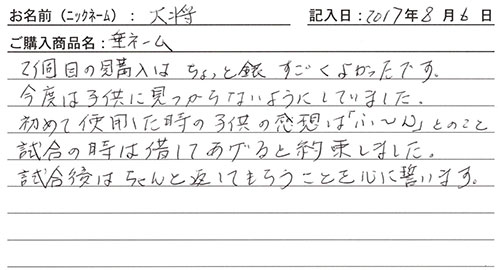 お名前（ニックネーム）： 大将 記入日：2017年8月6日
ご購入商品名：垂ネーム
2個目の購入はちょっと銀 すごくよかったです。
今度は子供に見つからないようにしていました。
初めて使用した時の子供の感想は「ふ〜ん」とのこと
試合の時は借してあげると約束しました。
試合後はちゃんと返してもらうことを心に誓います。